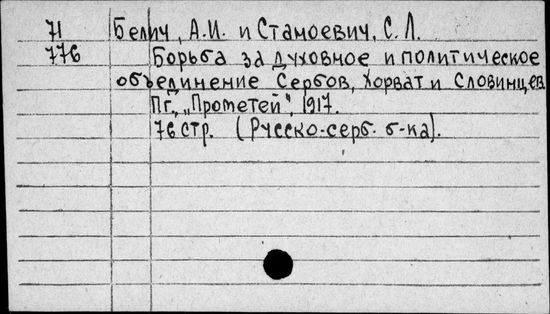 71 Белич, А.И. и Станоевич, С. Л.
776 Борьба за духовное и политическое
объединение Сербов, Хорват и Словинцев
Пг., „Прометей", 1917.
76 стр. (Русско-серб. б-ка).